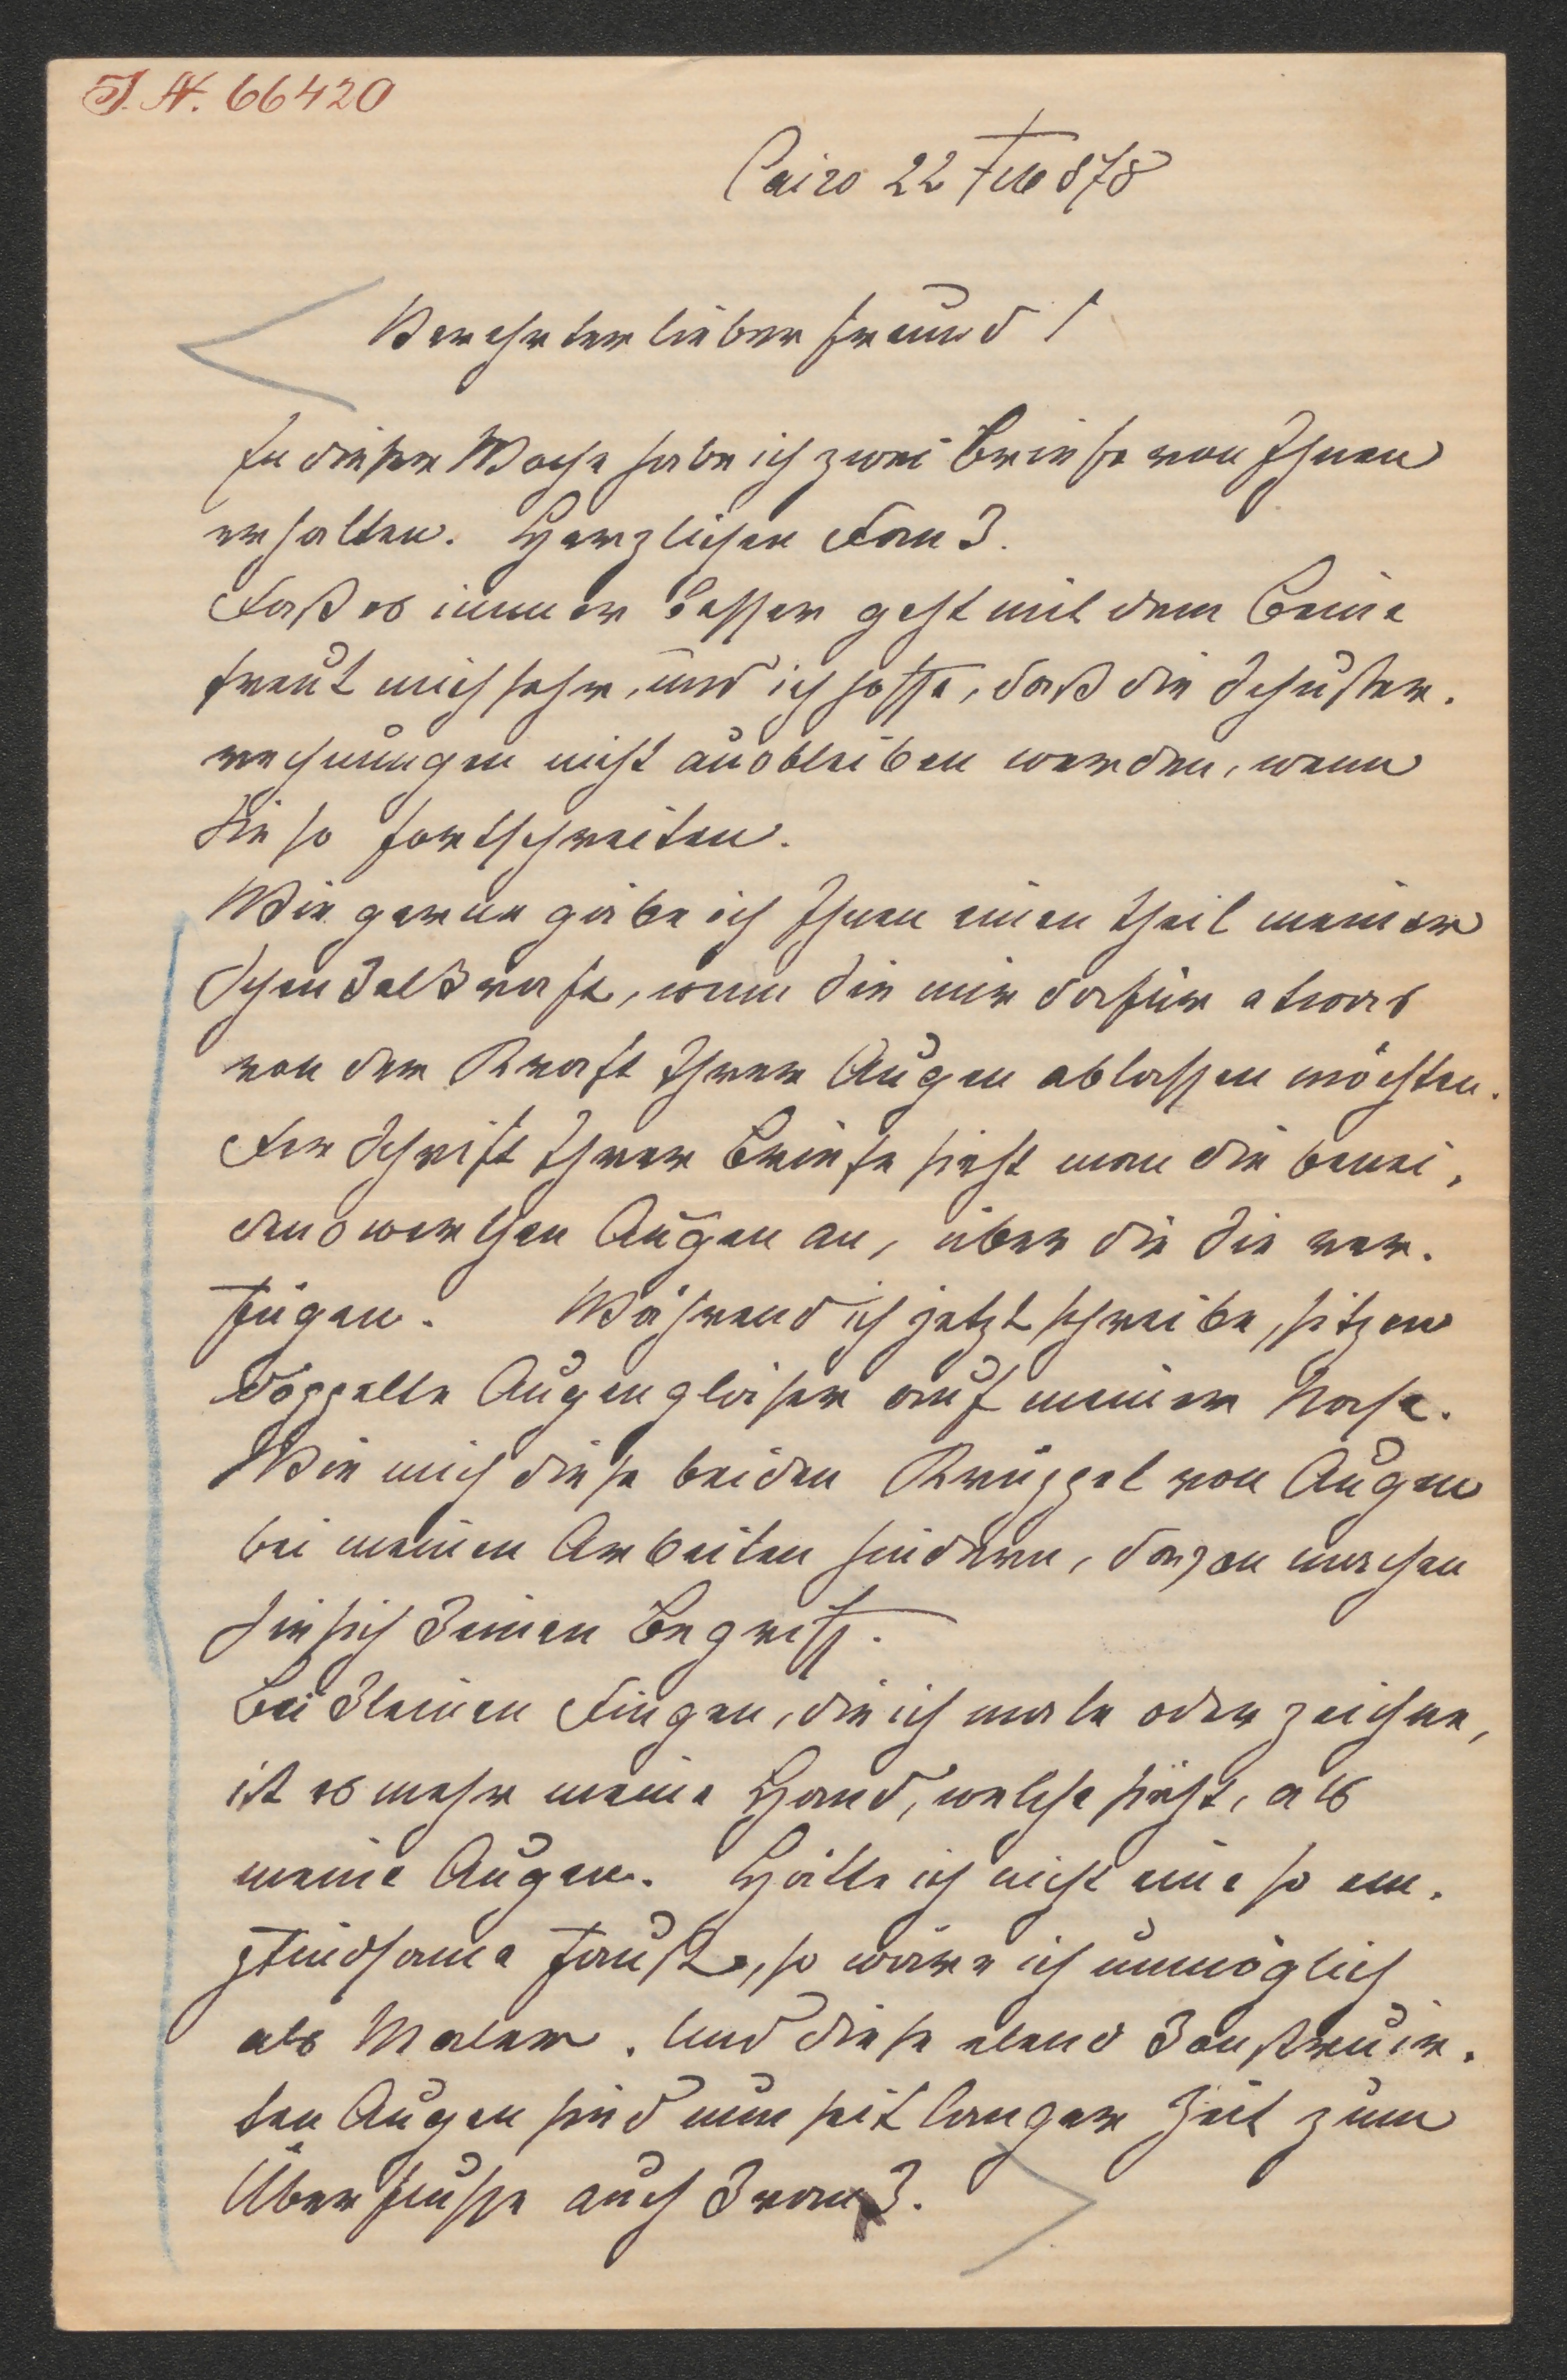 I. N. 66420
Cairo 22 Feb 878
Verehrter lieber Freund!
In dieser Woche habe ich zwei Briefe von Ihnen
erhalten. Herzlichen Dank.
Daß es immer besser geht mit dem Beine
freut mich sehr, und ich hoffe, daß die Schuster-
rechnungen nicht ausbleiben werden, wenn
Sie so fortschreiten.
Wie gerne gäbe ich Ihnen einen Theil meiner
Schenkelkraft, wenn Sie mir dafür etwas
von der Kraft Ihrer Augen ablassen möchten.
Der Schrift Ihrer Briefe sieht man die benei-
denswerthen Augen an, über die Sie ver-
fügen. Während ich jetzt schreibe, sitzen
doppelte Augengläser auf meiner Nase.
Wie mich diese beiden Krüppel von Augen
bei meinen Arbeiten hindern, davon machen
Sie sich keinen Begriff.
Bei kleinen Dingen, die ich male oder zeichne,
ist es mehr meine Hand, welche sieht, als
meine Augen. Hätte ich nicht eine so em-
pfindsame Faust, so wäre ich unmöglich
als Maler. Und diese elend konstruir-
ten Augen sind nun seit langer Zeit zum
Überflusse auch krank.